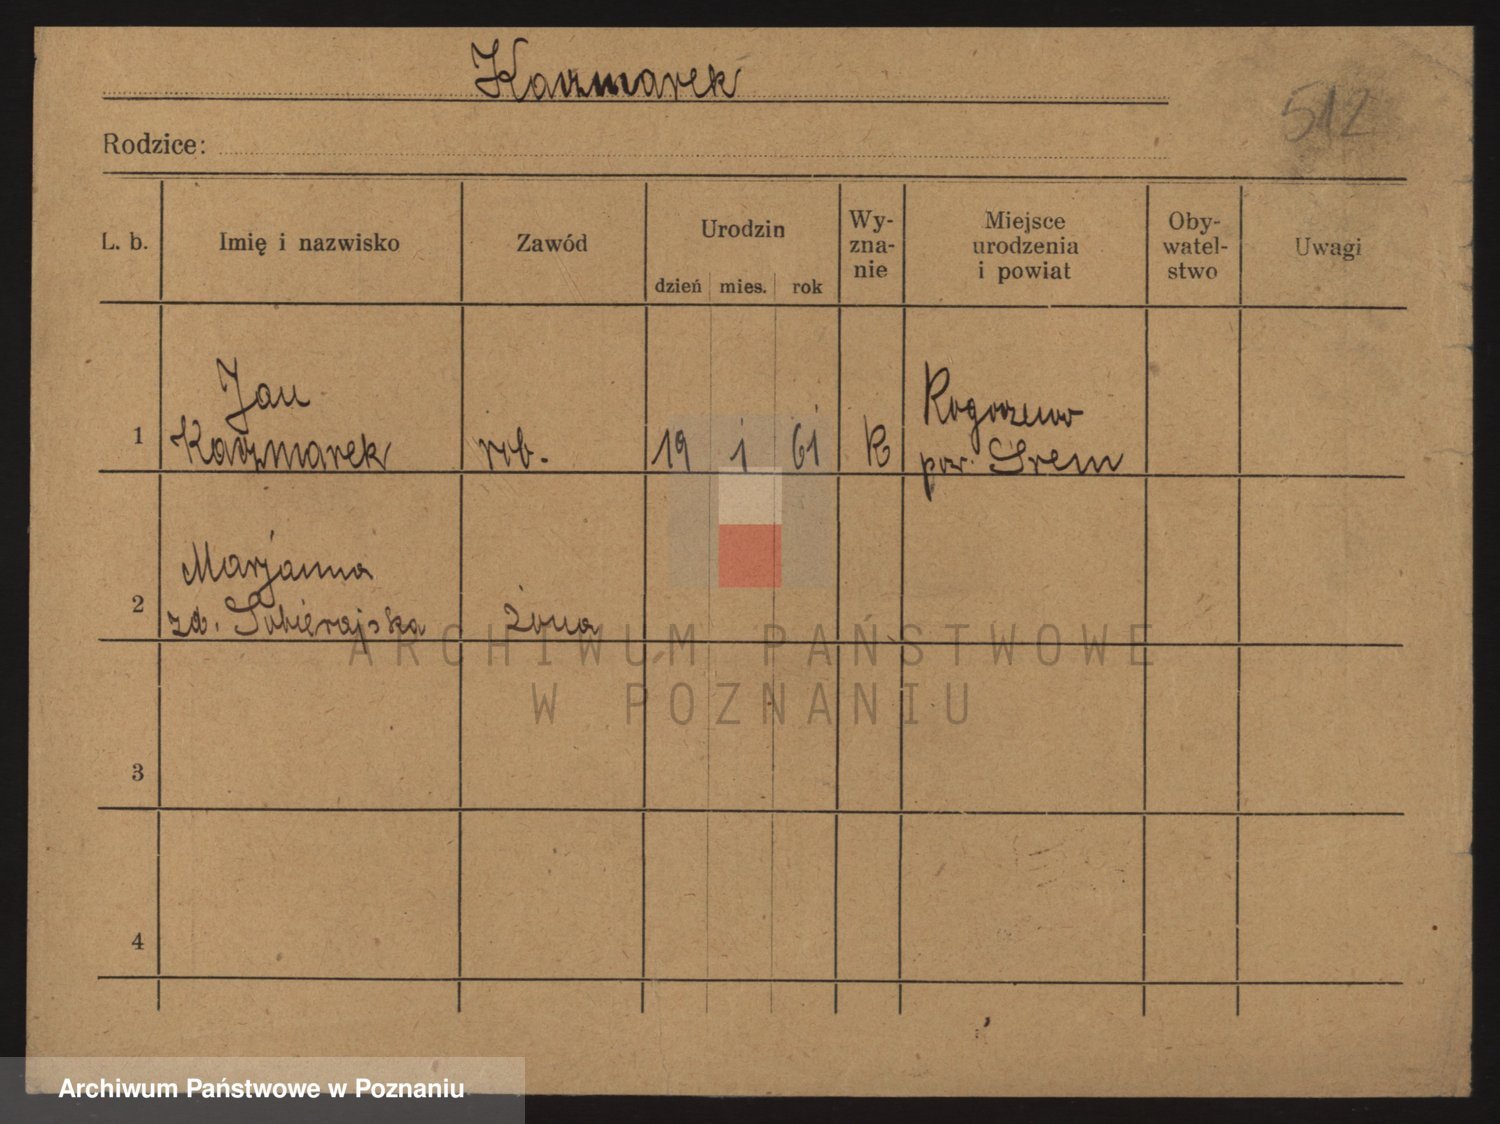 Kaczmarek
512
Rodzice:
L. b.
Imię i nazwisko
Zawód
Urodzin
dzień
mies.
rok
Wy-
zna-
nie
Miejsce
urodzenia
i powiat
Oby-
watel-
stwo
Uwagi
1
Jan
Kaczmarek
rob.
19
1
61
K
pow. Śrem
2
Marjanna
zd. Sobierajska
żona
3
4
ARCHIWUM PAŃSTWOWE
W POZNANIU
Archiwum Państwowe w Poznaniu